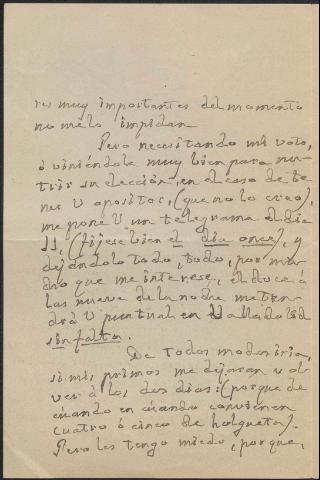 res muy importantes del momento
no me lo impidan
Pero necesitando mi voto,
ó viniéndole muy bien para nu-
trir su elección, en el caso de te-
ner V opositor, (que no lo creo),
me pone V un telegrama el día
11, (fíjese bien el día once), y
dejándolo todo, todo, por mu-
cho que me interese, el doce á
las nueve de la noche me ten-
drá V puntual en Valladolid
sin falta.
De todos modos iría,
si mis primos me dejaran vol-
ver á los dos días: (porque de
cuando en cuando convienen
cuatro ó cinco de holgueta).
Pero les tengo miedo, porque,